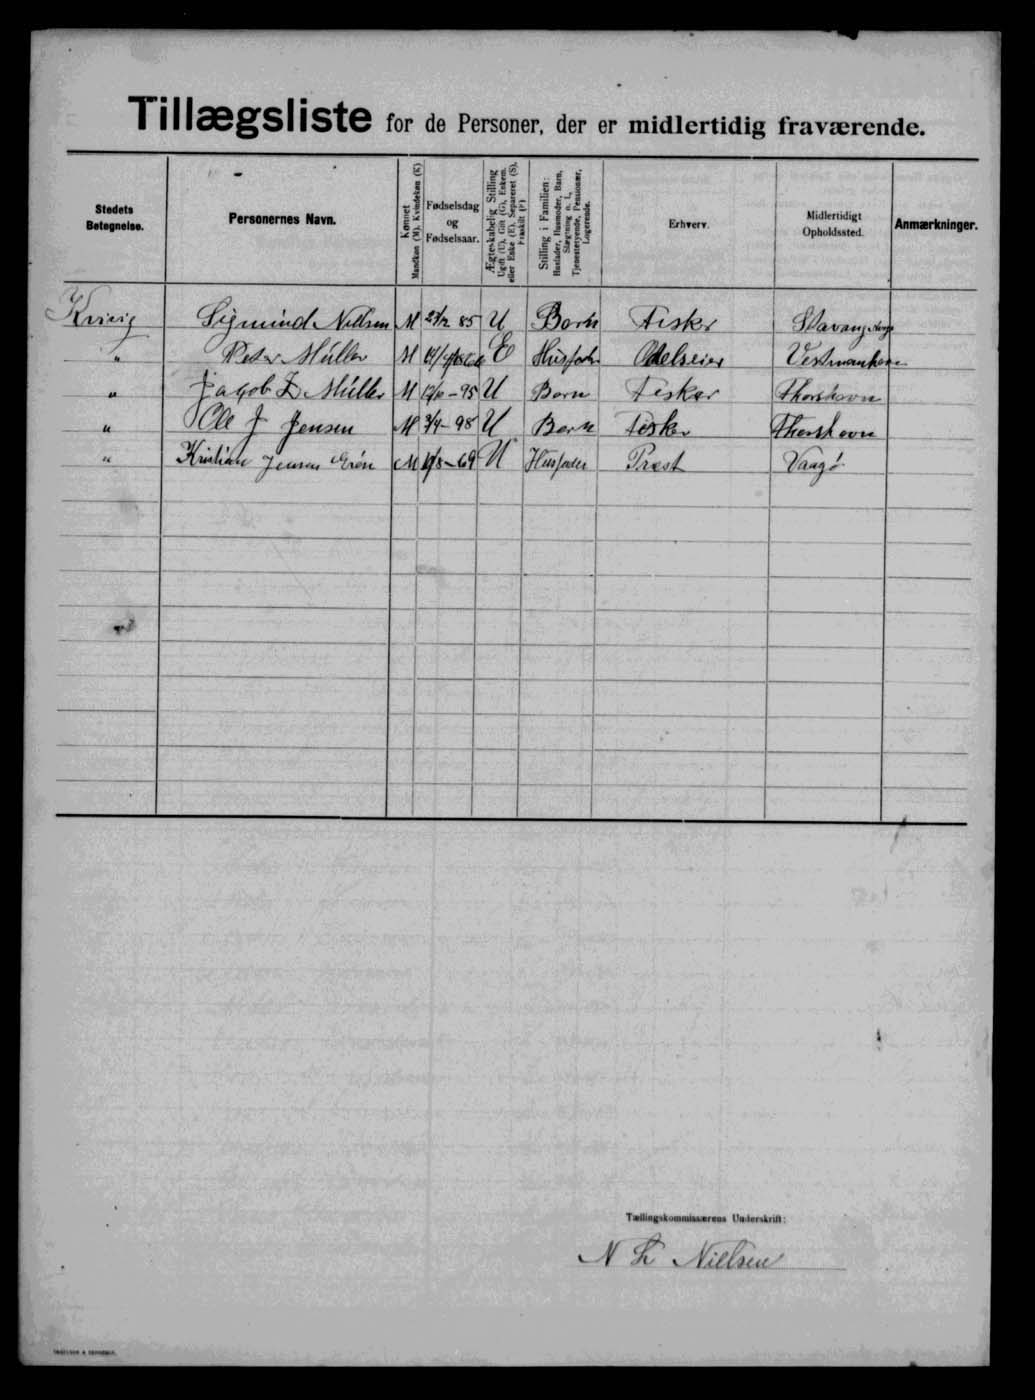 Tillægsliste for de Personer, der er midlertidig fraværende.
Stedets Betegnelse.
Personernes Navn.
Kønnet
Mandkøn (M). Kvindekøn (K)
Fødselsdag
og
Fødselsaar.
Ægteskabelig Stilling
Ugift (U), Gift (G), Enkem. eller Enke (E), Separeret (S), Fraskilt (F)
Stilling i Familien:
Husfader, Husmoder, Barn, Slægtning o. l., Tjenestetyende, Pensionær, Logerende.
Erhverv.
Midlertidigt
Opholdssted.
Anmærkninger.
Kvivig Sigmund Nielsen M 23/12 85 U Barn Fisker Stavang Norge
" Peter Müller M E Husfader Odelseier Vestmanhavn
" Jacob L Müller M – 95 U Barn Fisker Thorshavn
" Ole J Jensen M 3/4 – 98 U Barn Fisker Thorshavn
" Kristian Jensen M – 69 U Husfader Præst Vaagö
Tællingskommissærens Underskrift:
N L Nielsen